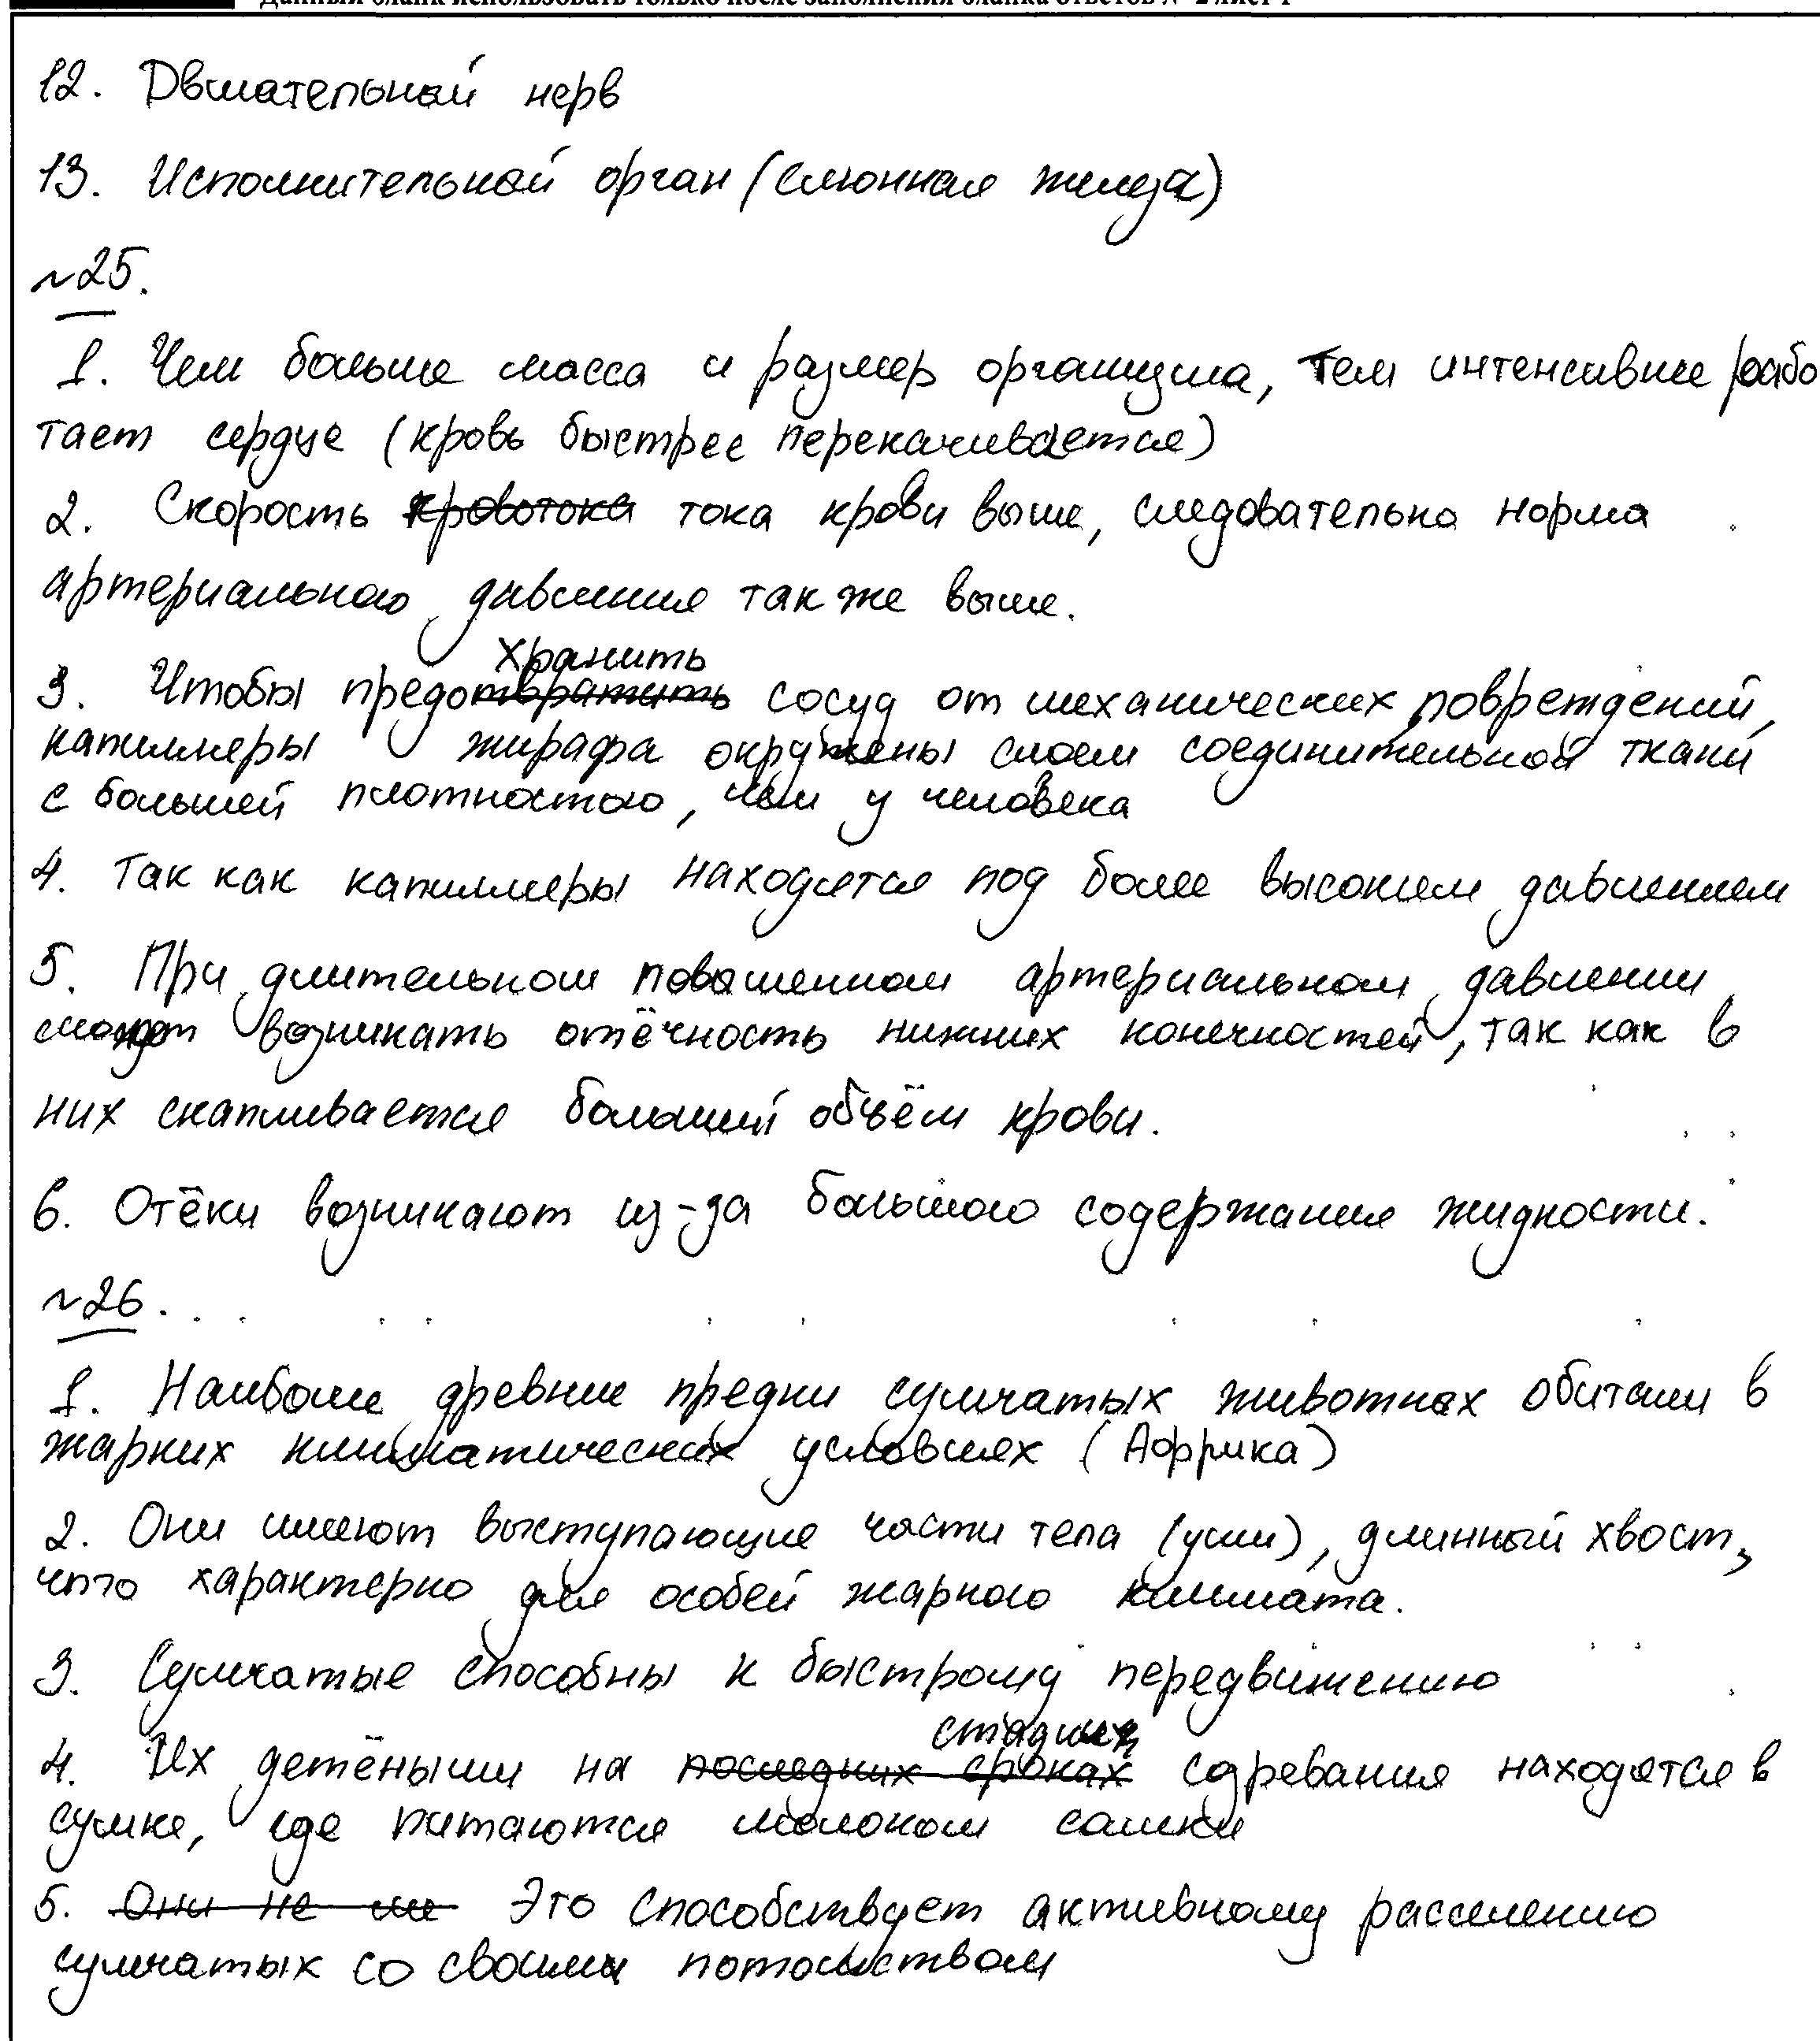 Данный бланк использовать только после заполнения бланка ответов № 2 лист 1
12. Двигательный нерв
13. Исполнительный орган (слюнная железа)
~25.
1. Чем больше масса и размер организма, тем интенсивнее рабо
тает сердце (кровь быстрее перекачивается)
2. Скорость кровотока тока крови выше, следовательно норма
артериального давления также выше.
хранить
3. Чтобы предотвратить сосуд от механических повреждений,
капилляры жирафа окружены слоем соединительной ткани
с большей плотностью, чем у человека
4. Так как капилляры находятся под более высоким давлением
5. При длительном повышенном артериальном давлении
может возникать отёчность нижних конечностей, так как в
них скапливается больший объём крови.
6. Отёки возникают из-за большого содержания жидкости.
~26.
1. Наиболее древние предки сумчатых животных обитали в
жарких климатических условиях (Аффрика)
2. Они имеют выступающие части тела (уши), длинный хвост,
что характерно для особей жаркого климата.
3. Сумчатые способны к быстрому передвижению
стадиях
4. Их детёныши на последних сроках созревания находятся в
сумке, где питаются молоком самки
5. Они не им Это способствует активному расселению
сумчатых со своими потомством